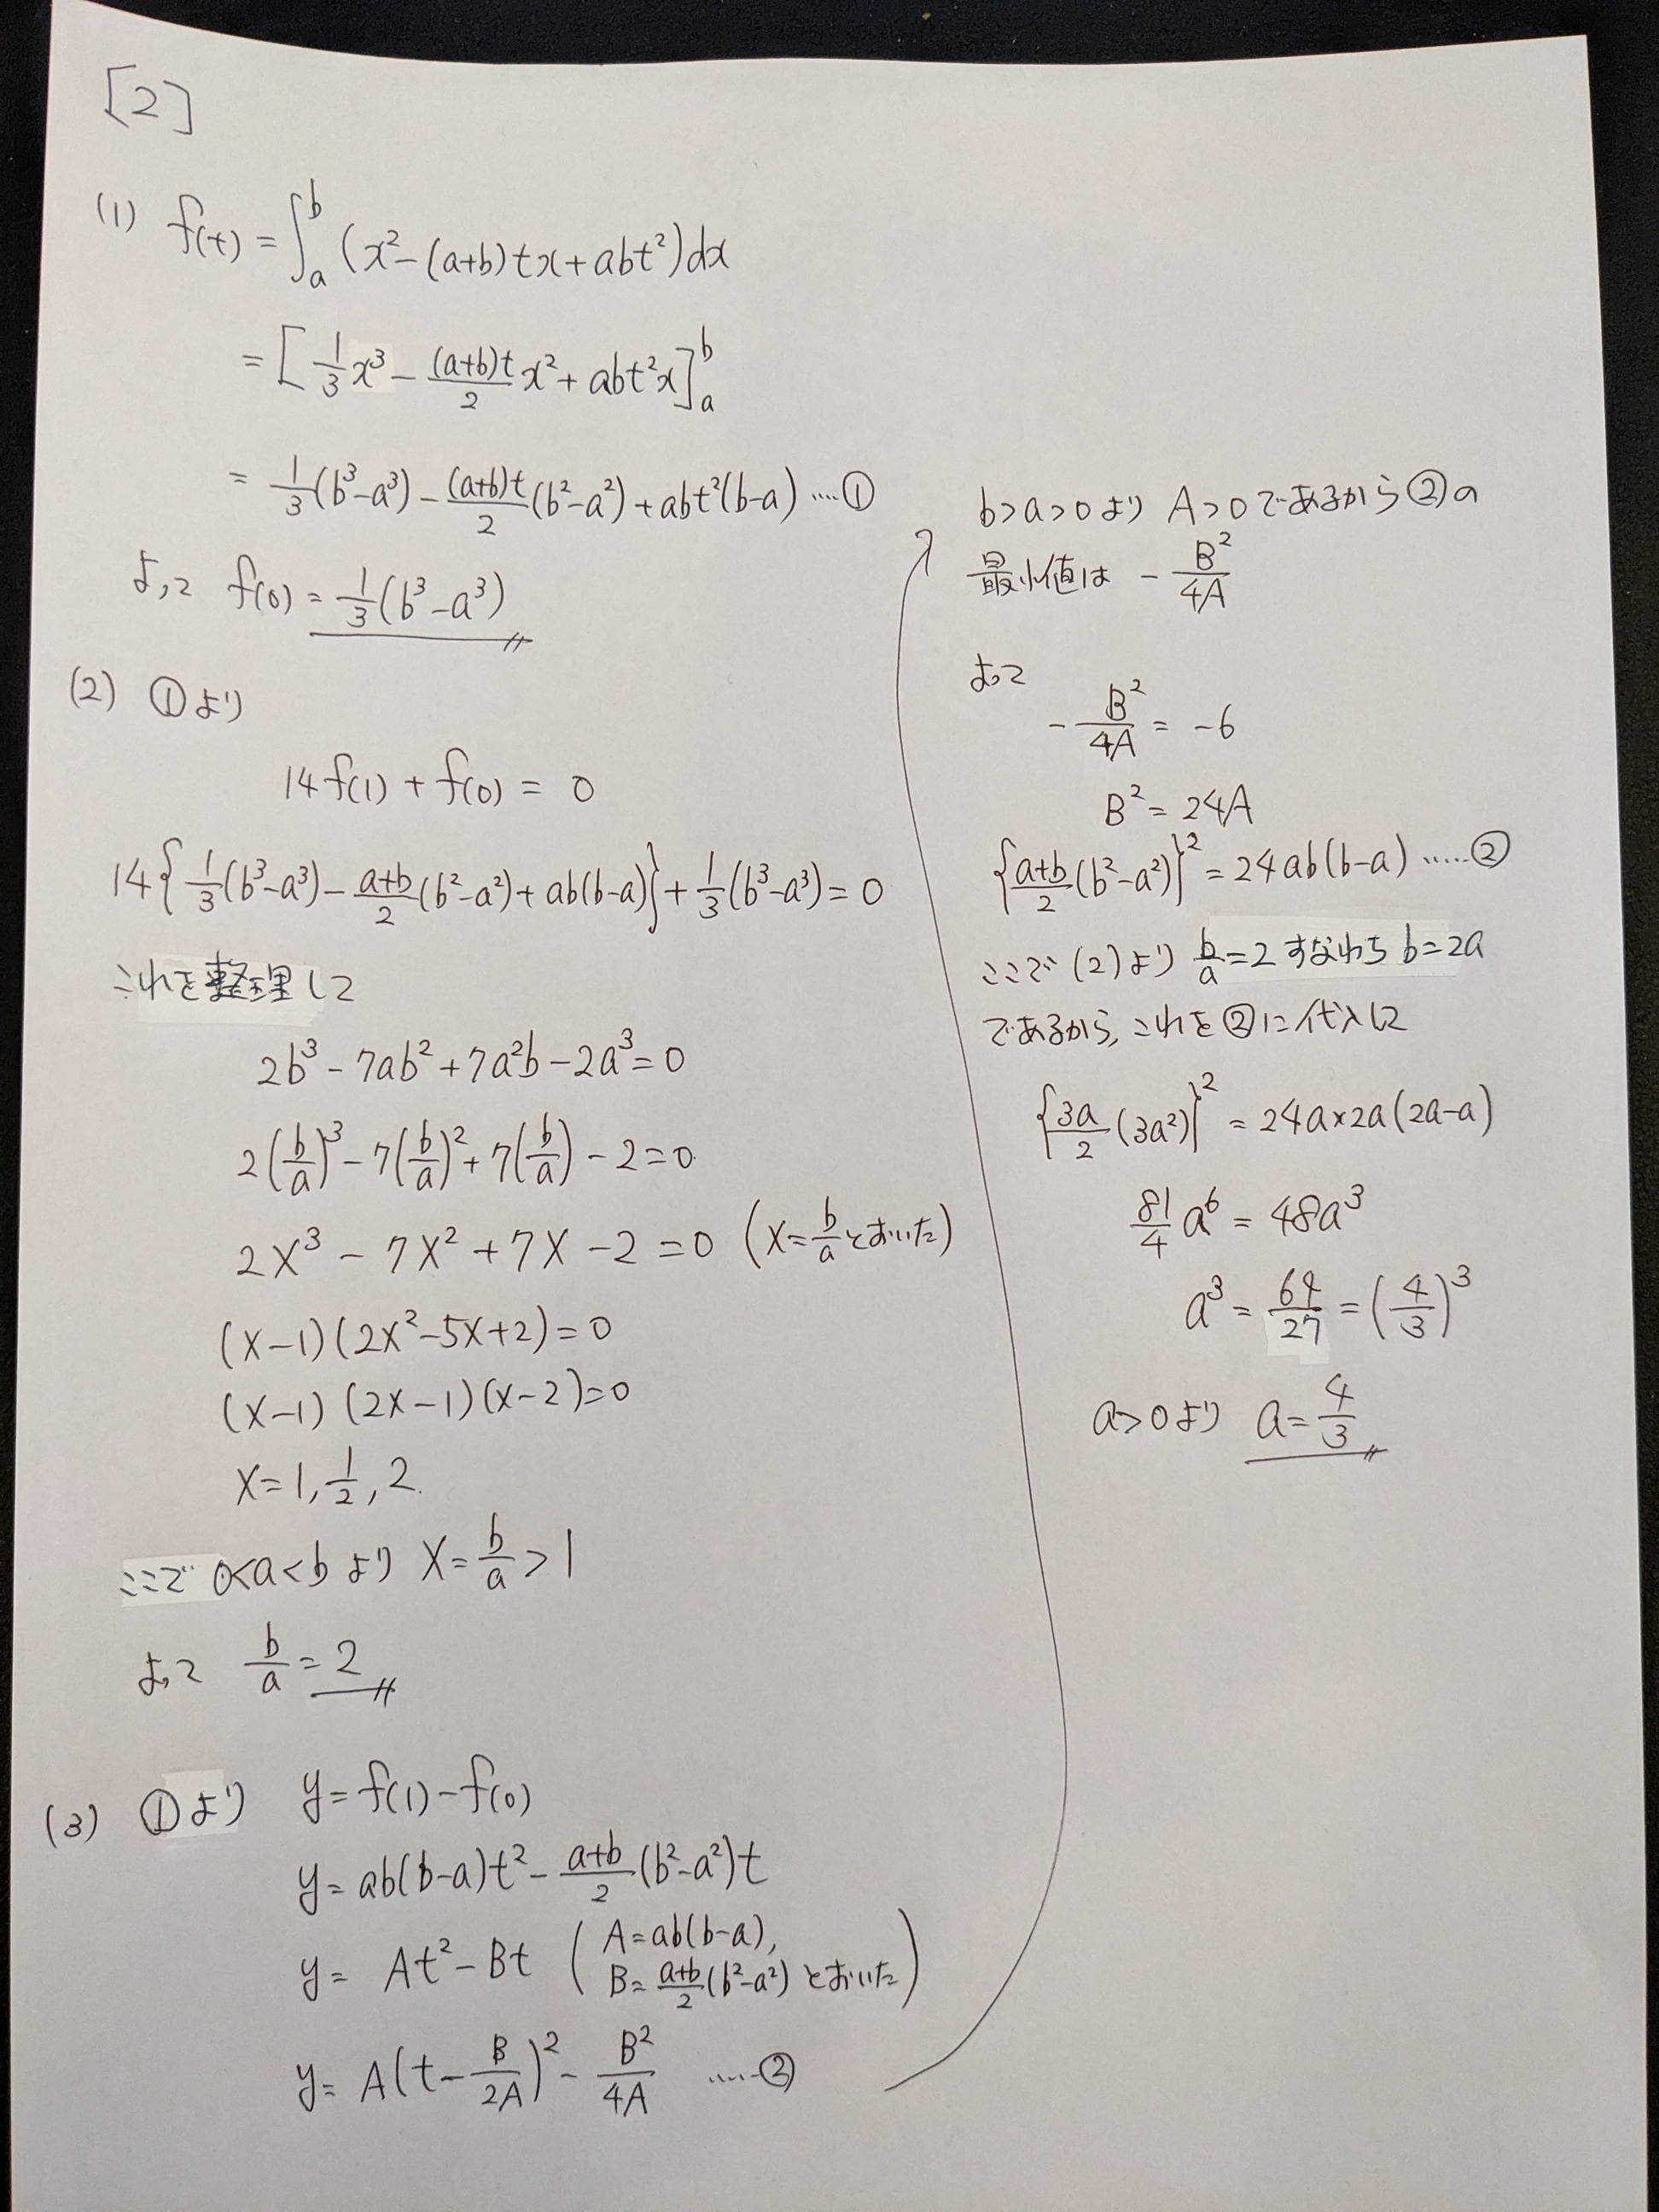 [2]
(1) f(t) = ∫_a^b (x² − (a+b)tx + abt²)dx
= [1/3 x³ − (a+b)t/2 x² + abt²x]_a^b
= 1/3(b³−a³) − (a+b)t/2 (b²−a²) + abt²(b−a) ····①
よって f(0) = 1/3(b³−a³)
(2) ①より
14f(1) + f(0) = 0
14{1/3(b³−a³) − (a+b)/2 (b²−a²) + ab(b−a)} + 1/3(b³−a³) = 0
これを整理して
2b³ − 7ab² + 7a²b − 2a³ = 0
2(b/a)³ − 7(b/a)² + 7(b/a) − 2 = 0
2X³ − 7X² + 7X − 2 = 0 (X = b/a とおいた)
(X−1)(2X²−5X+2) = 0
(X−1)(2X−1)(X−2) = 0
X = 1, 1/2, 2.
ここで 0<a<b より X = b/a > 1
よって b/a = 2
(3) ①より y = f(1) − f(0)
y = ab(b−a)t² − (a+b)/2 (b²−a²)t
y = At² − Bt (A = ab(b−a),
B = (a+b)/2 (b²−a²) とおいた)
y = A(t − B/2A)² − B²/4A ·····②
b>a>0より A>0であるから②の
最小値は − B²/4A
よって
− B²/4A = −6
B² = 24A
{(a+b)/2 (b²−a²)}² = 24ab(b−a) ·····②
ここで(2)より b/a = 2 すなわち b = 2a
であるから, これを②に代入して
{3a/2 (3a²)}² = 24a×2a(2a−a)
81/4 a⁶ = 48a³
a³ = 64/27 = (4/3)³
a>0より a = 4/3